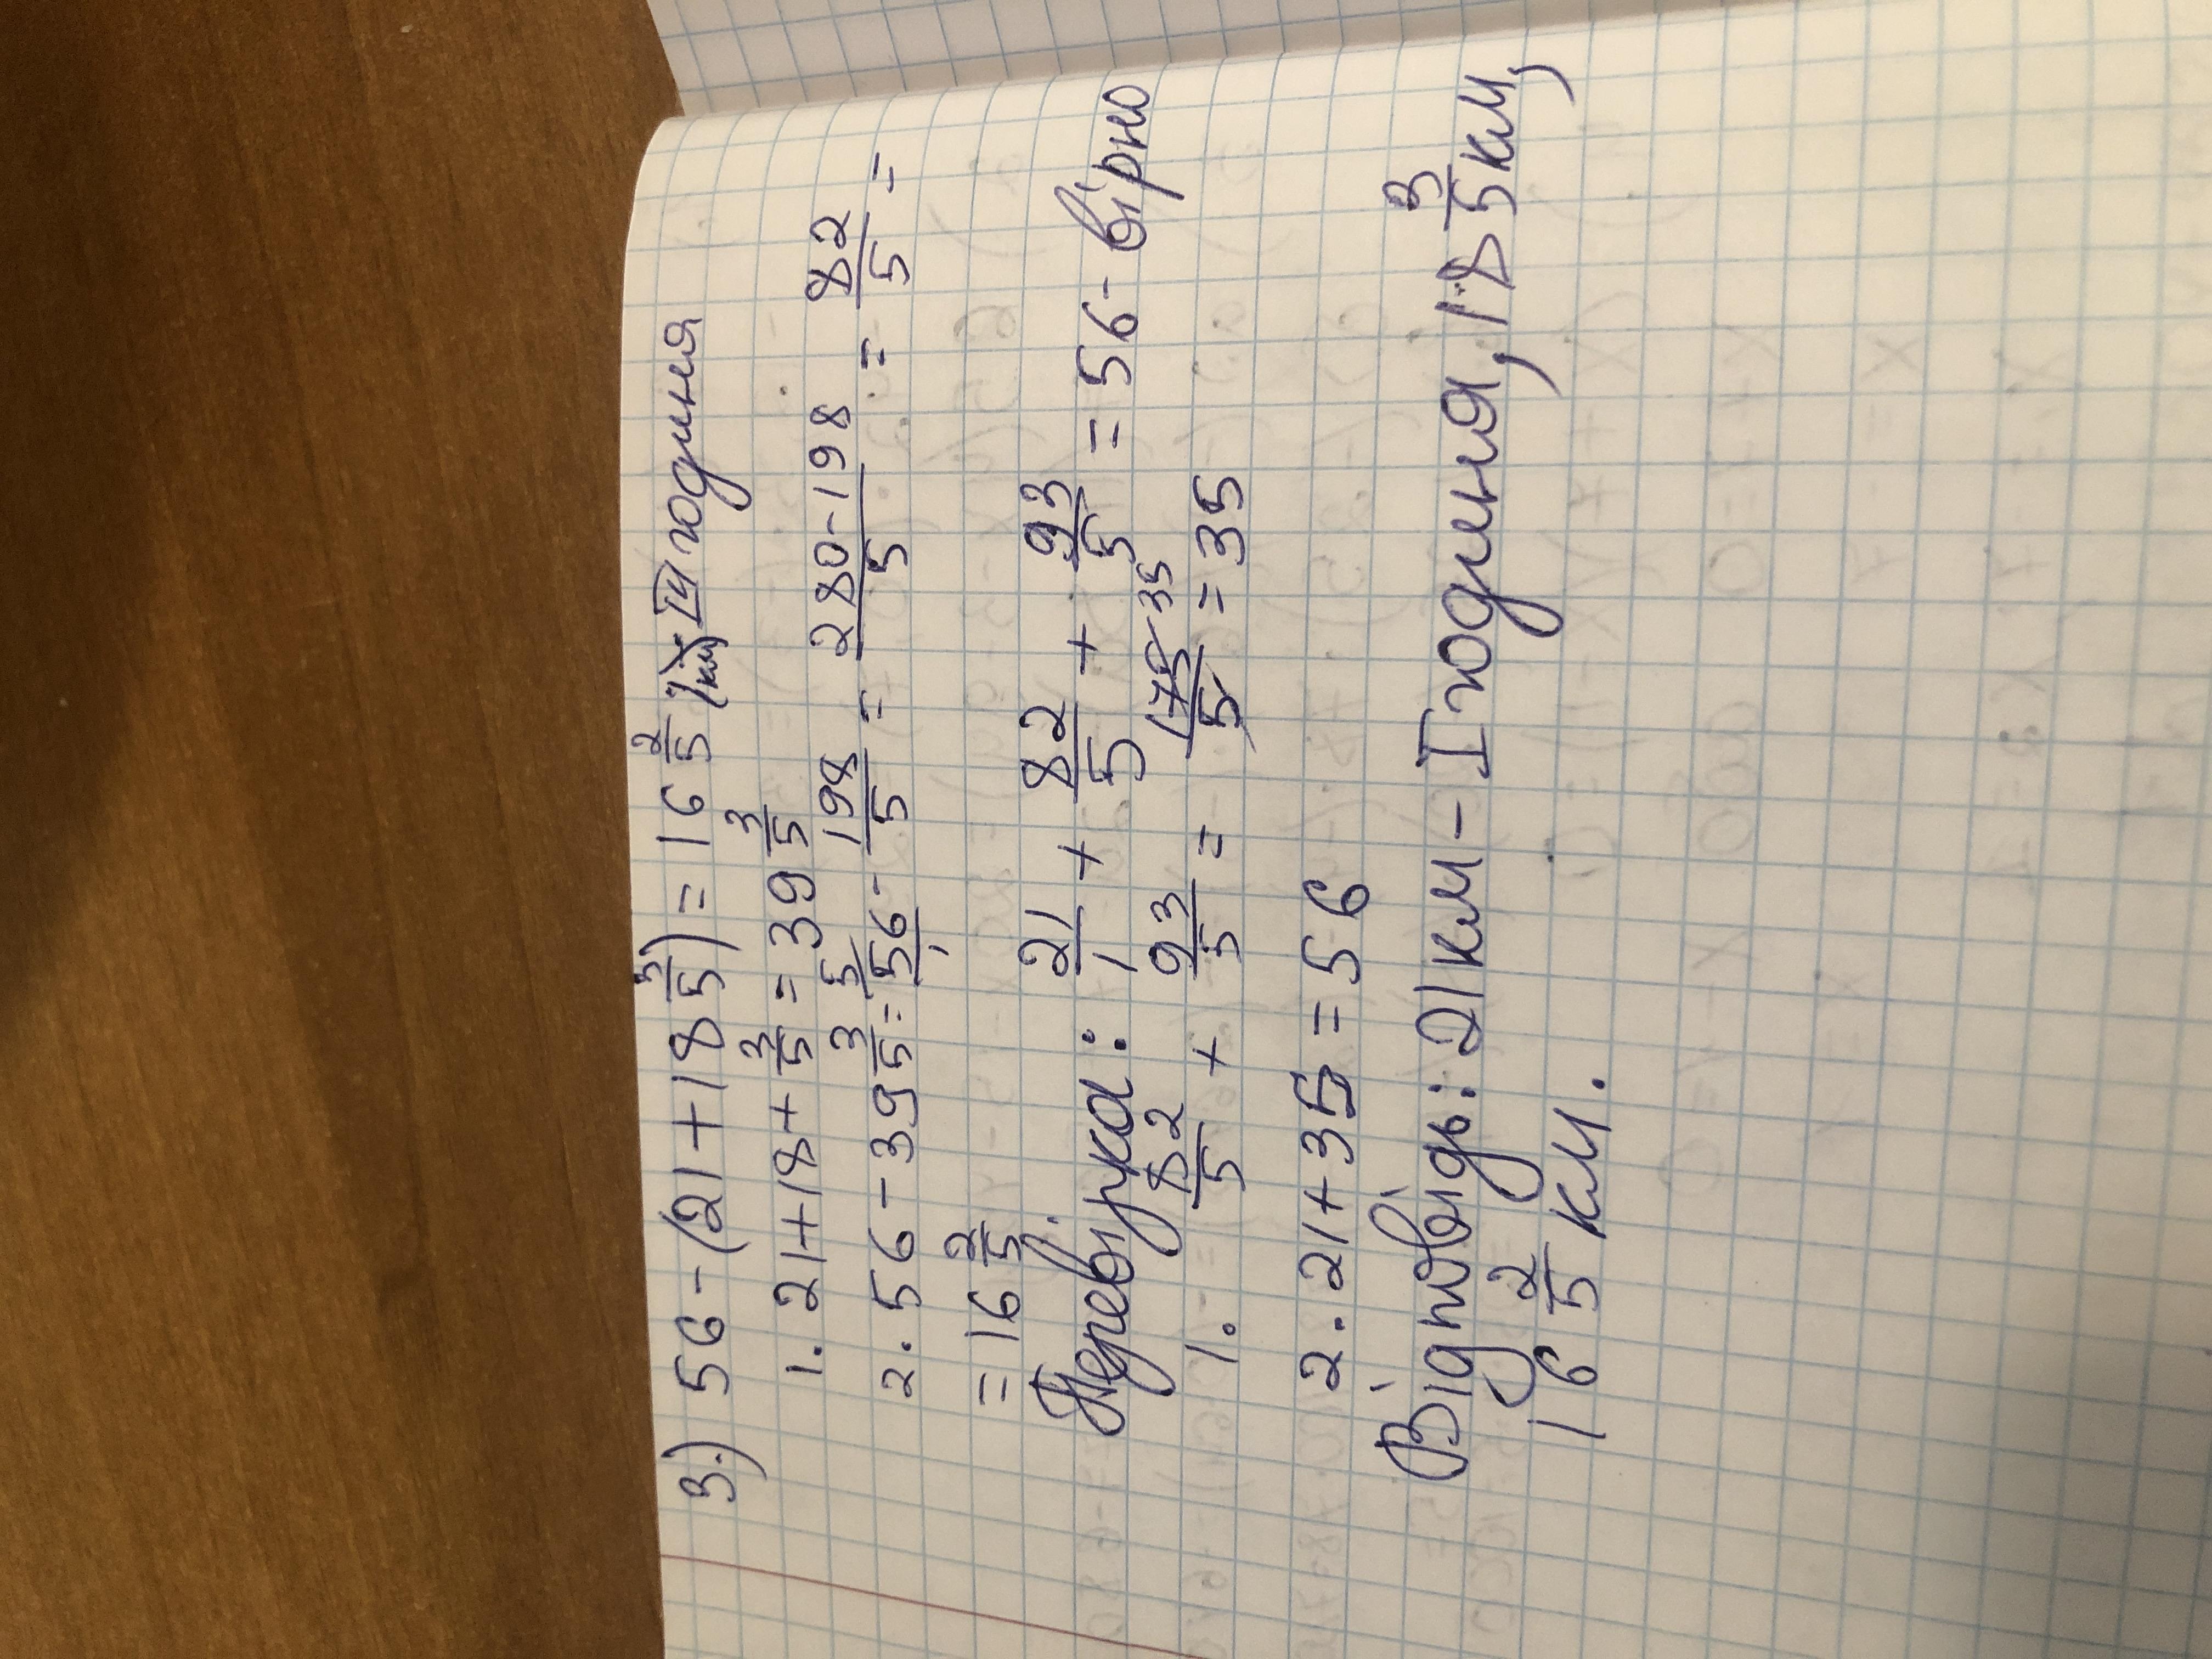 3.) 56-(21+18 3/5)=16 2/5 (км) III година
1. 21+18+3/5=39 3/5
2. 56-39 3/5=56/1-198/5=280-198/5=82/5=
=16 2/5
Перевірка: 21/1+82/5+93/5=56-вірно
1. 82/5+93/5=175/5=35
2. 21+35=56
Відповідь: 21км-І година, 18 3/5 км,
16 2/5 км.